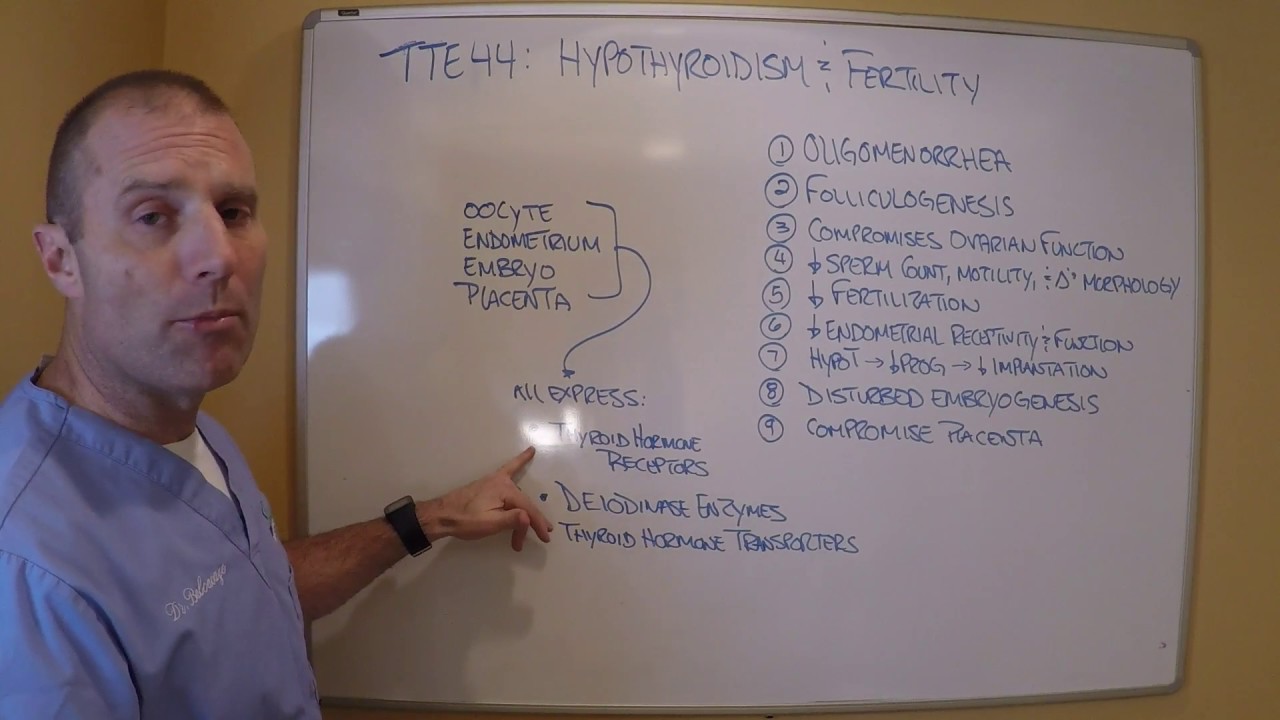 TTE 44: HYPOTHYROIDISM & FERTILITY
OOCYTE
ENDOMETRIUM
EMBRYO
PLACENTA
All EXPRESS:
• THYROID HORMONE
RECEPTORS
• DEIODINASE ENZYMES
THYROID HORMONE TRANSPORTERS
① OLIGOMENORRHEA
② FOLLICULOGENESIS
③ COMPROMISES OVARIAN FUNCTION
④ ↓ SPERM COUNT, MOTILITY, & Δ' MORPHOLOGY
⑤ ↓ FERTILIZATION
⑥ ↓ ENDOMETRIAL RECEPTIVITY & FUNCTION
⑦ HYPOT → ↓ PROG → ↓ IMPLANTATION
⑧ DISTURBED EMBRYOGENESIS
⑨ COMPROMISE PLACENTA
Dr.